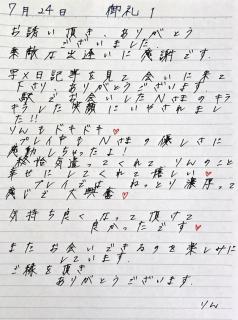 7月24日 御礼1
お誘い頂き、ありがとう
ございました。
素敵な出逢いに感謝です。
写メ日記等を見て会いに来て
下さり、ありがとうございます。
駅でお会いしたNさまのキラ
キラした笑顔にいやされまし
た!!
りんもドキドキ♥
プレイ中もNさまの優しさに
感動しちゃった!!
気遣ってくれて りんのこと
幸せにしてくれて嬉しい♥
プレイでは ねっとり濃厚って
感じで大興奮♥
気持ち良くなって頂けて
良かったです♥
またお会いできるのを楽しみに
しています。
ご縁を頂き
ありがとうございます。
りん